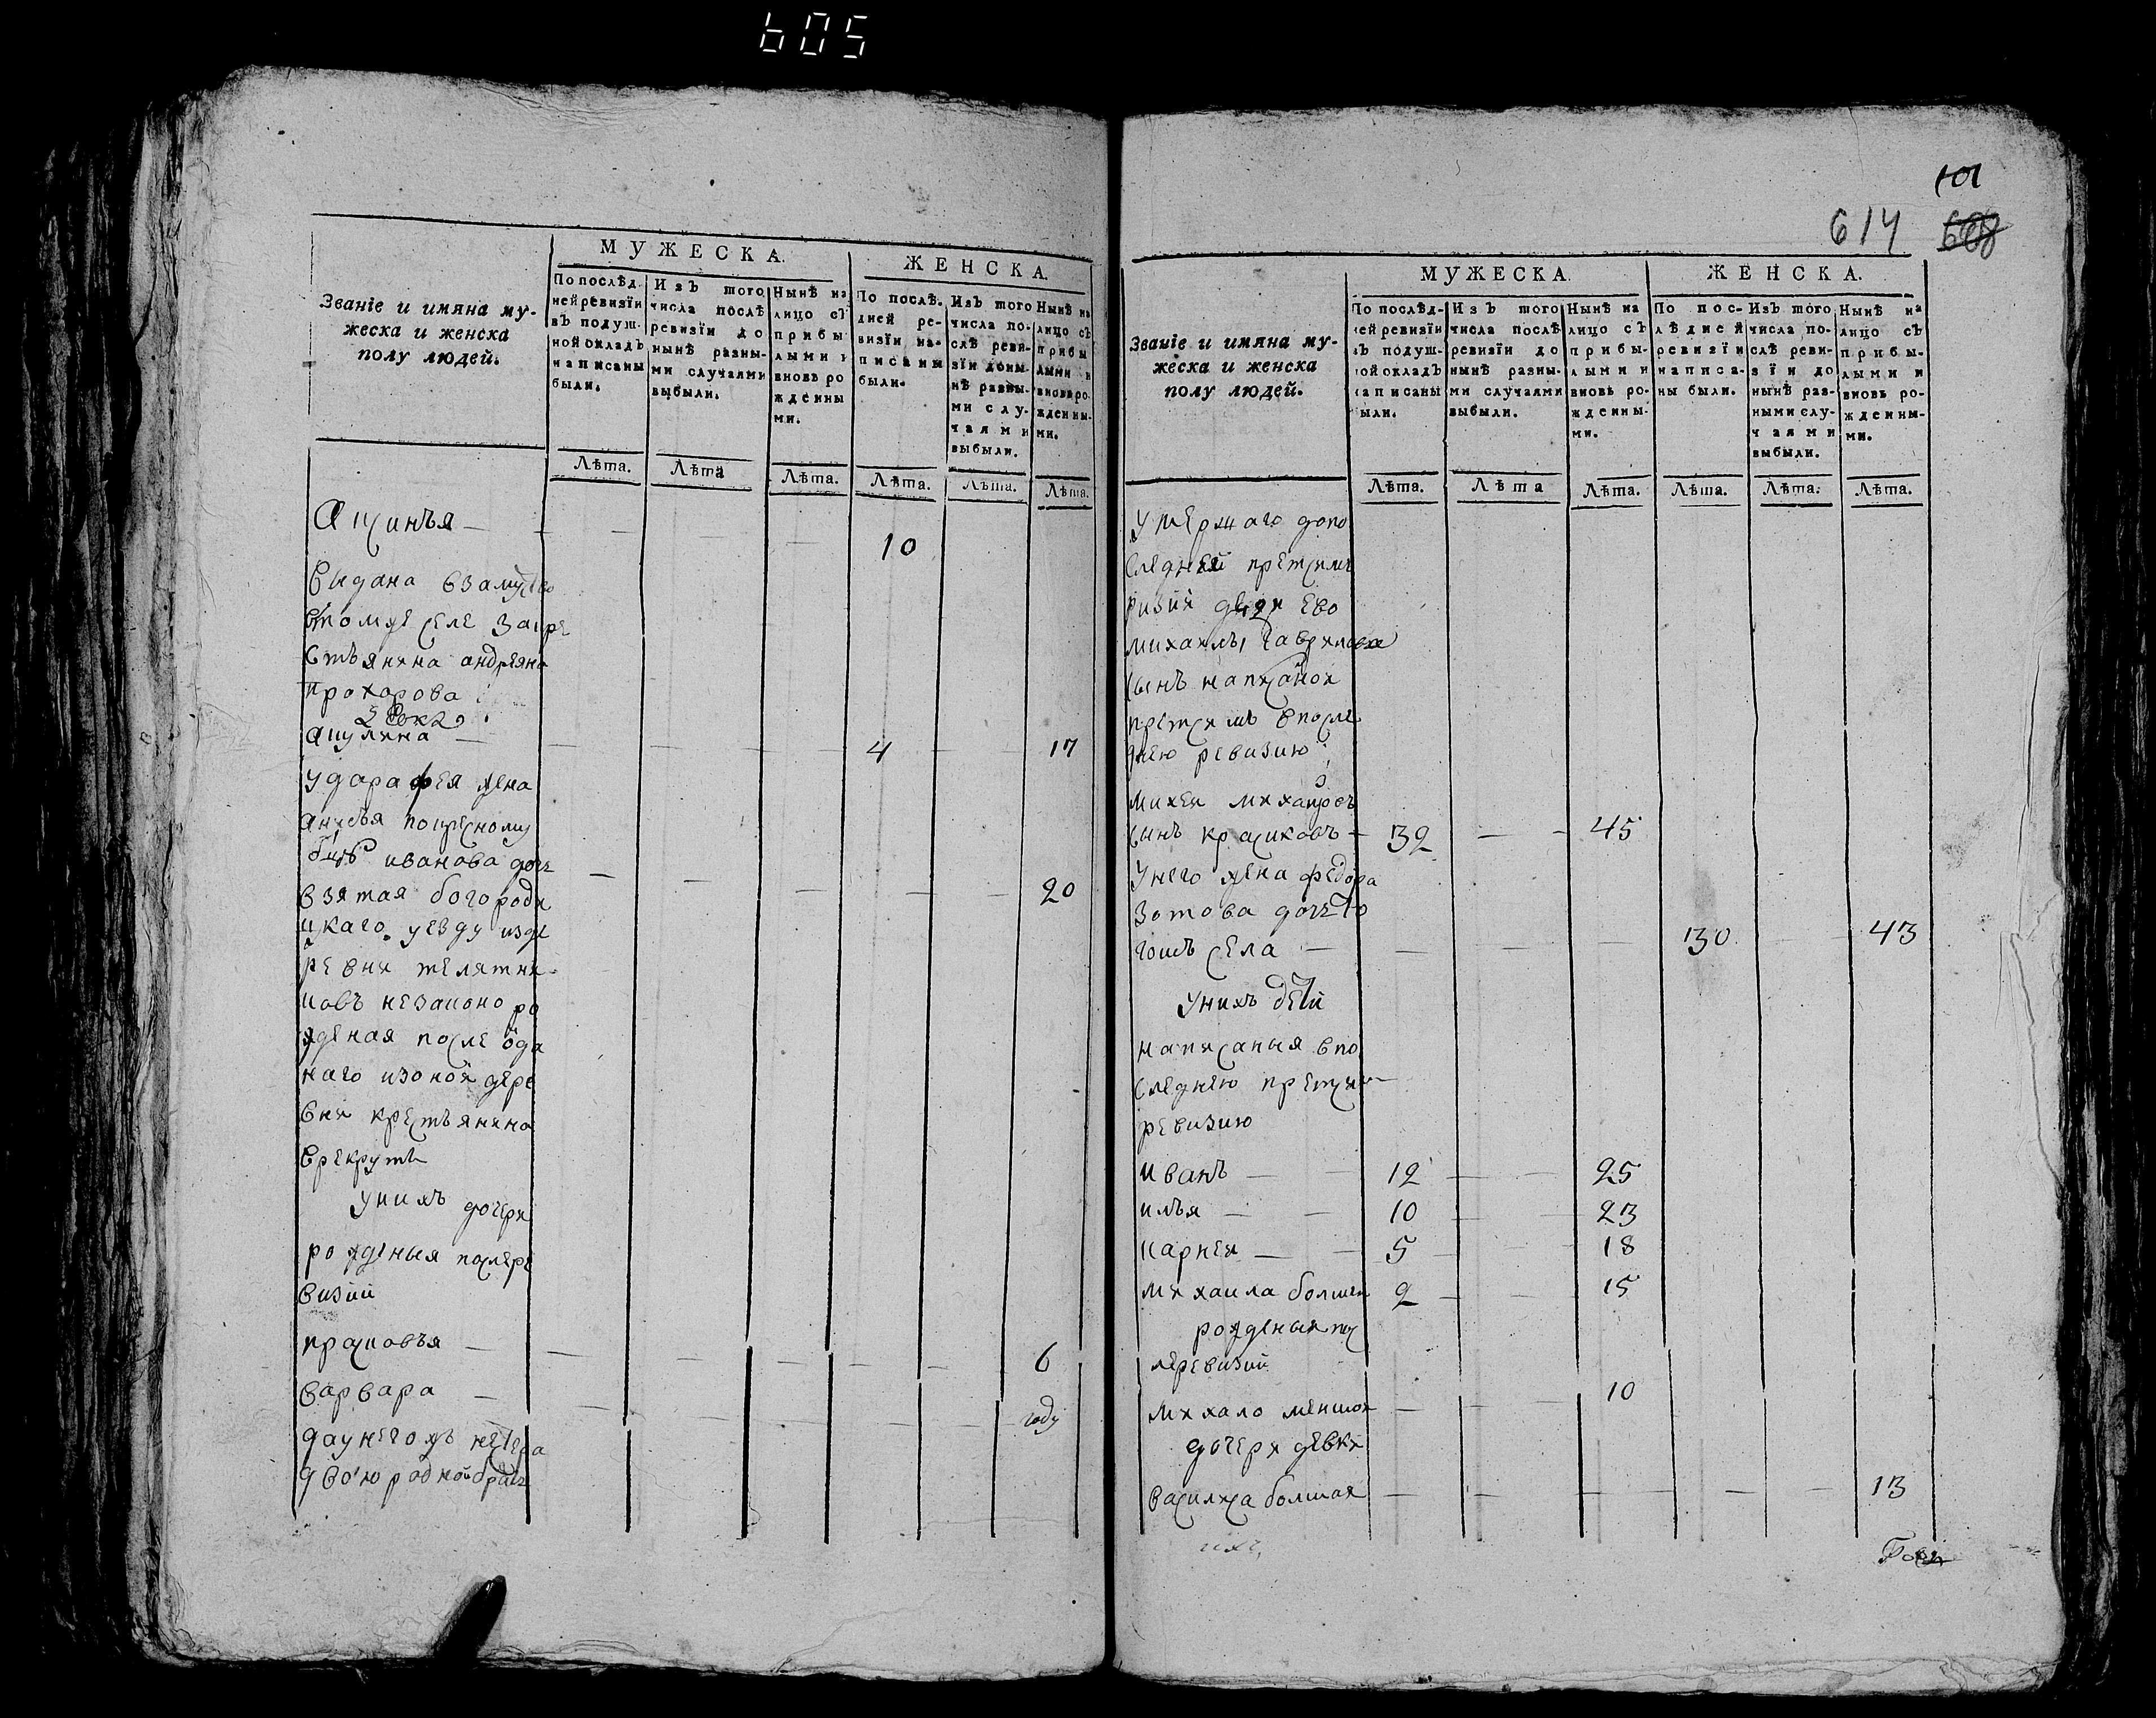 605
МУЖЕСКА.
ЖЕНСКА.
Званїе и имяна му-
жеска и женска
полу людей.
По послѣд-
ней ревизїи
въ подуш-
ной окладъ
написаны
были.
Изъ того
числа послѣ
ревизїи до
нынѣ разны-
ми случаями
выбыли.
Нынѣ на
лицо съ
прибы
лыми и
вновь ро
жденны
ми.
По послѣ-
дней ре-
визїи на-
писаны
были.
Изъ того
числа по-
слѣ реви-
зїи доны-
нѣ разны-
ми слу-
чаями
выбыли.
Нынѣ на
лицо съ
прибы
лыми и
вновь ро-
жденны-
ми.
Лѣта. Лѣта Лѣта. Лѣта. Лѣта. Лѣта.
Аксинья 10
выдана взамуство
втомже селе за кре
стьянина андреяна
прохарова
акулина 4 17
у дарафея жена
иванова доч
взятая богороди
цкаго уезду изде
ревни телятни
ковъ незаконо ро
жденая после отда
наго изоной дере
вни крестьянина
врекруты
унихъ дочери
рожденыя послере
визии
прасковья 6
варвара году
двоюродной братъ
101
614 688
МУЖЕСКА.
ЖЕНСКА.
Званїе и имяна му-
жеска и женска
полу людей.
По послѣд-
ней ревизїи
въ подуш-
ной окладъ
написаны
были.
Изъ того
числа послѣ
ревизїи до
нынѣ разны-
ми случаями
выбыли.
Нынѣ на
лицо съ
прибы-
лыми и
вновь ро-
жденны-
ми.
По пос-
лѣдней
ревизїи
написа-
ны были.
Изъ того
числа по-
слѣ реви-
зїи до
нынѣ раз-
ными слу-
чаями
выбыли.
Нынѣ на
лицо съ
прибы-
лыми и
вновь ро-
жденны-
ми.
Лѣта. Лѣта Лѣта. Лѣта. Лѣта. Лѣта.
умершаго допо
следней претъиди
ризии дяди ево
михаилы гаврилова
сынъ написаной
впосле
днею ревизию
михей
сынъ красиковъ 32 45
унего жена федора
зотова дочь то
гожъ села 30 43
унихъ дети
написаныя впо
следнею
ревизию
иванъ 12 25
илья 10 23
карней 5 18
михаила болшей 2 15
рожденыя пос
леревизии
михало меншой 10
дочери девки
василиса болшая 13